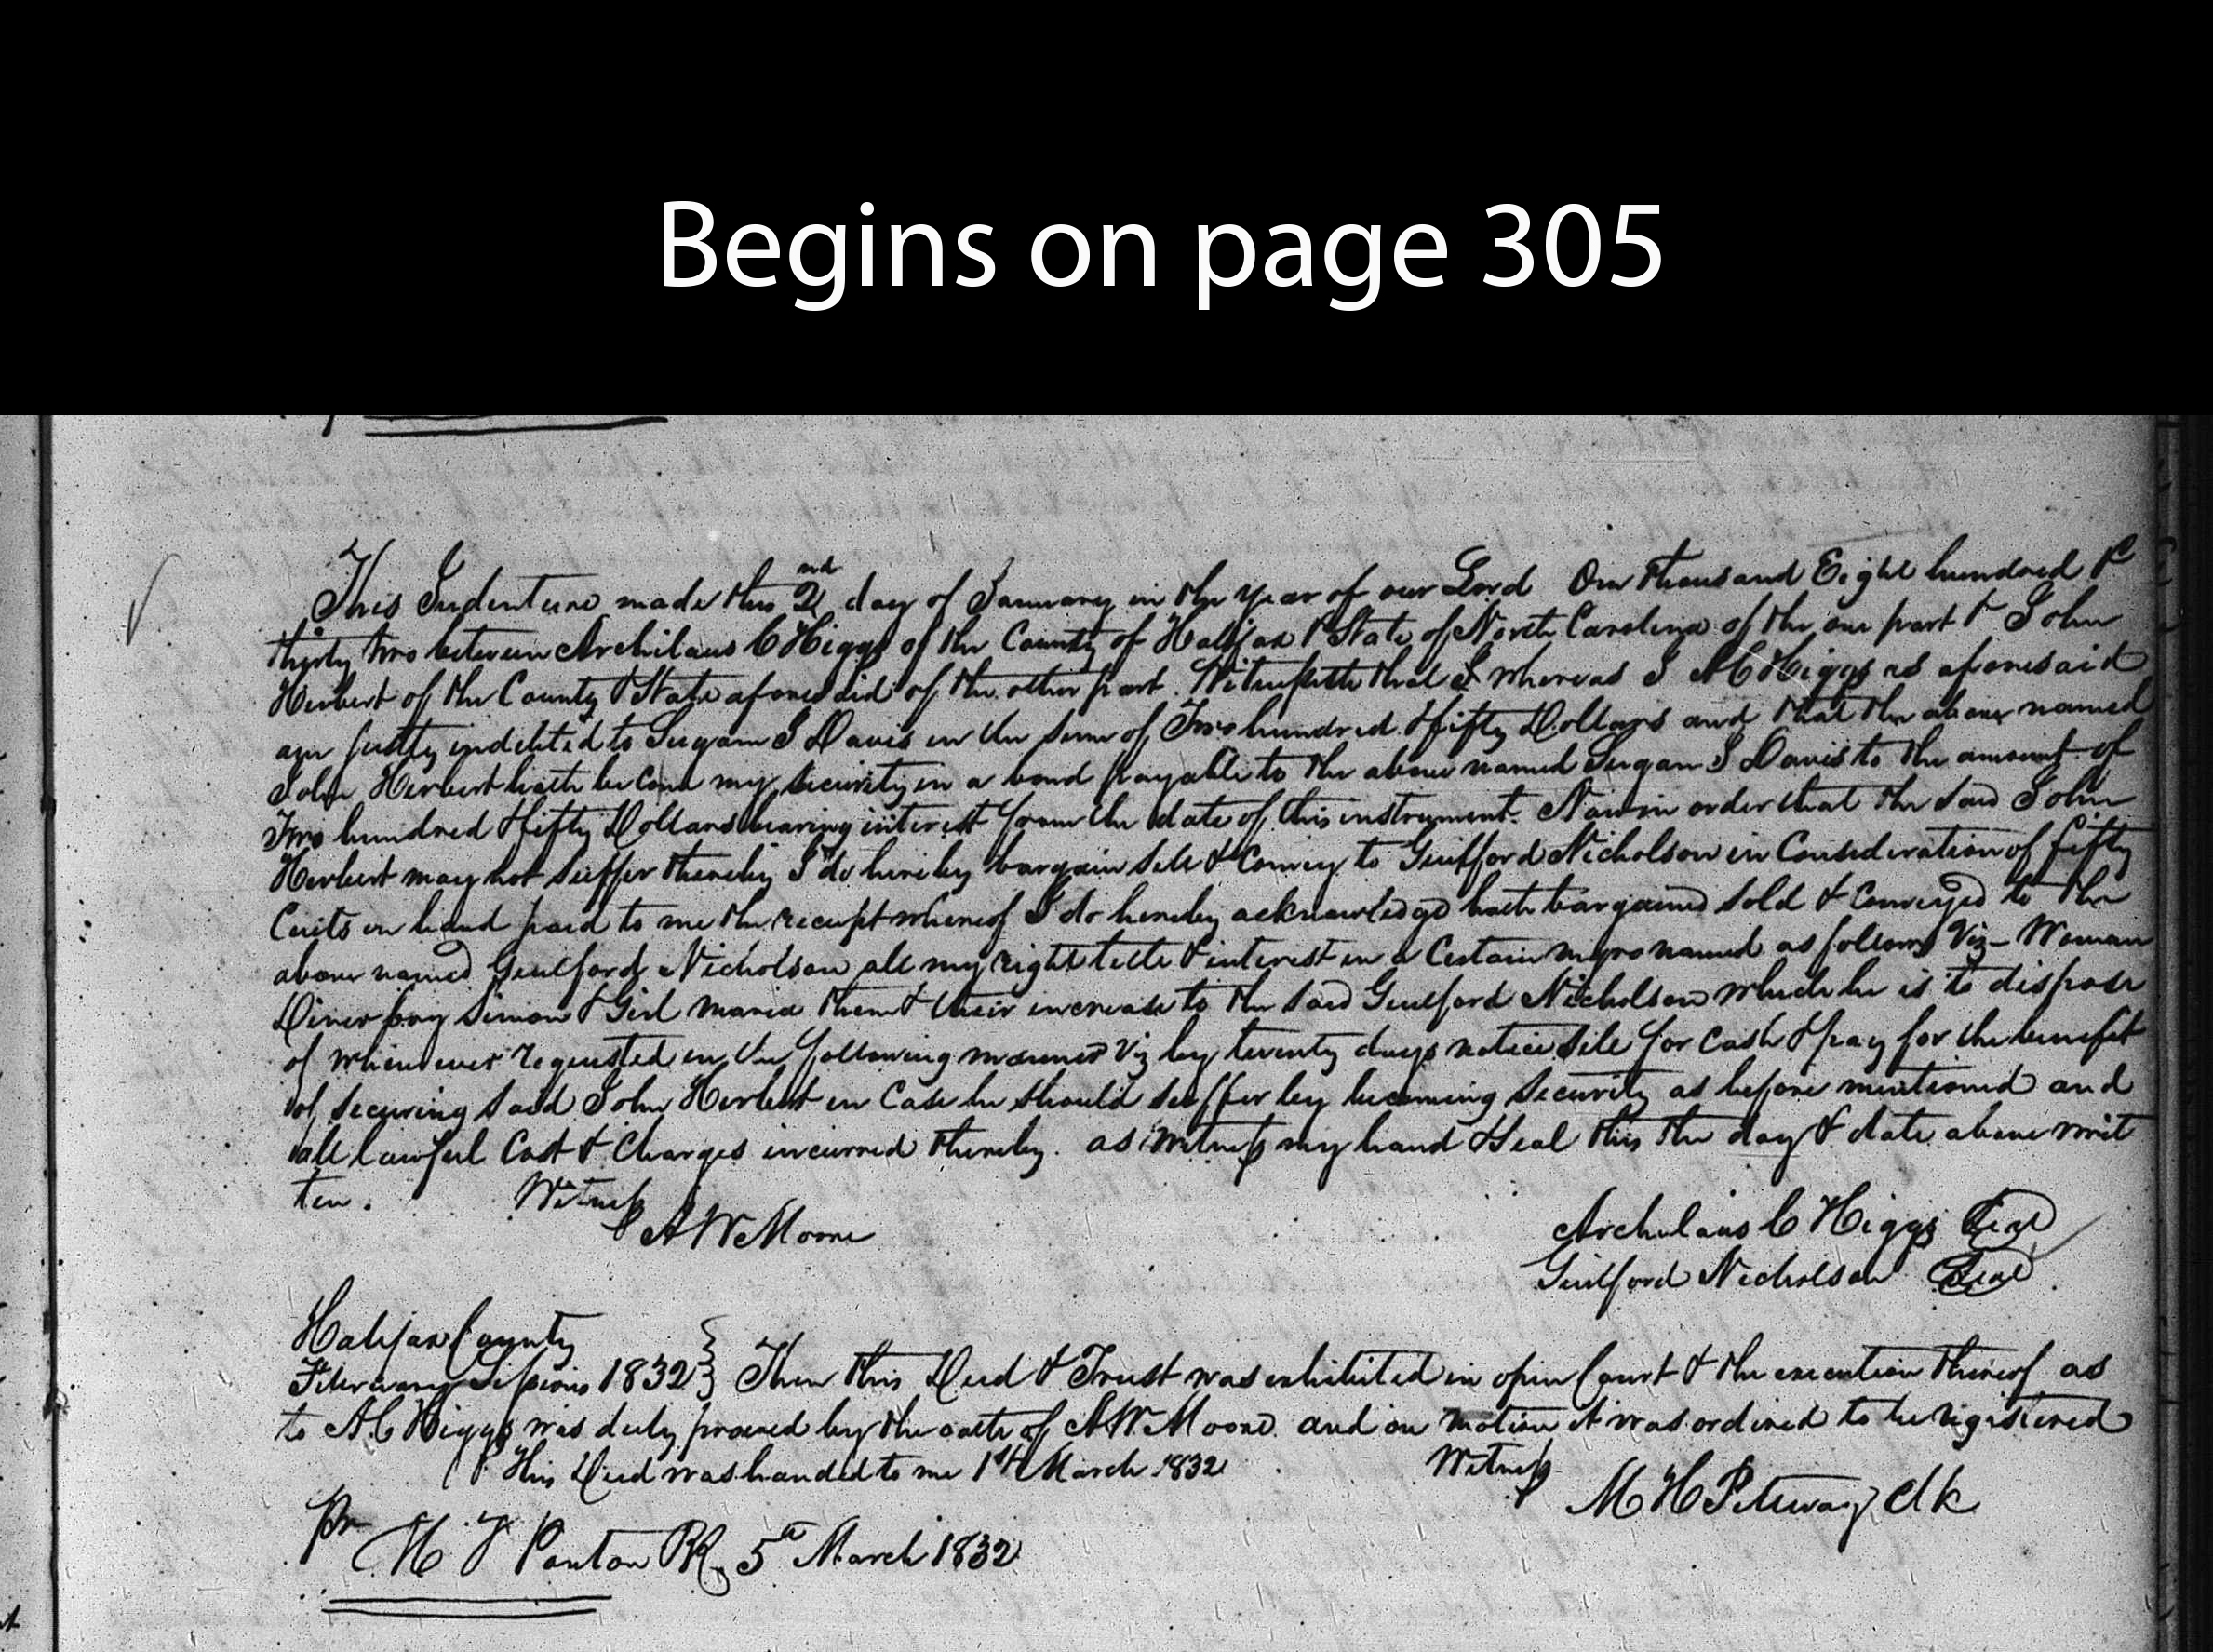 Begins on page 305
This Indenture made this 2nd day of January in the year of our Lord One thousand Eight hundred &
thirty two between Archilaus C Higgs of the County of Halifax & State of North Carolina of the one part & John
Herbert of the County & State aforesaid of the other part. Witnesseth that I whereas I A C Higgs as aforesaid
am justly indebted to Surgan S Davis in the sum of Two hundred & fifty Dollars and that the above named
John Herbert hath become my security in a bond payable to the above named Surgan S Davis to the amount of
Two hundred & fifty Dollars bearing interest from the date of this instrument. Now in order that the said John
Herbert may not suffer thereby I do hereby bargain sell & Convey to Guilford Nicholson in Consideration of fifty
Cents in hand paid to me the receipt whereof I do hereby acknowledge hath bargained sold & Conveyed to the
above named Guilford Nicholson all my right title & interest in a Certain negro named as follows Viz- Woman
Diner boy Simon & Girl maria them & their increase to the said Guilford Nicholson which he is to dispose
of whenever requested in the following manner Viz by twenty days notice sele for Cash & pay for the benefit
of securing said John Herbert in Case he should suffer by becoming security as before mentioned and
all lawful Cost & Charges incurred thereby. as Witness my hand & seal this the day & date above writ
ten. Witness
A W Moore
Archelaus C Higgs Seal
Guilford Nicholson Seal
Halifax County
February Sessions 1832 } Then this Deed & Trust was exhibited in open Court & the execution thereof as
to A C Higgs was duly proved by the oath of A W Moore and on motion it was ordered to be registered
This Deed was handed to me 1st March 1832 Witness
M H Petteway Clk
Pr M J Ponton PR 5th March 1832